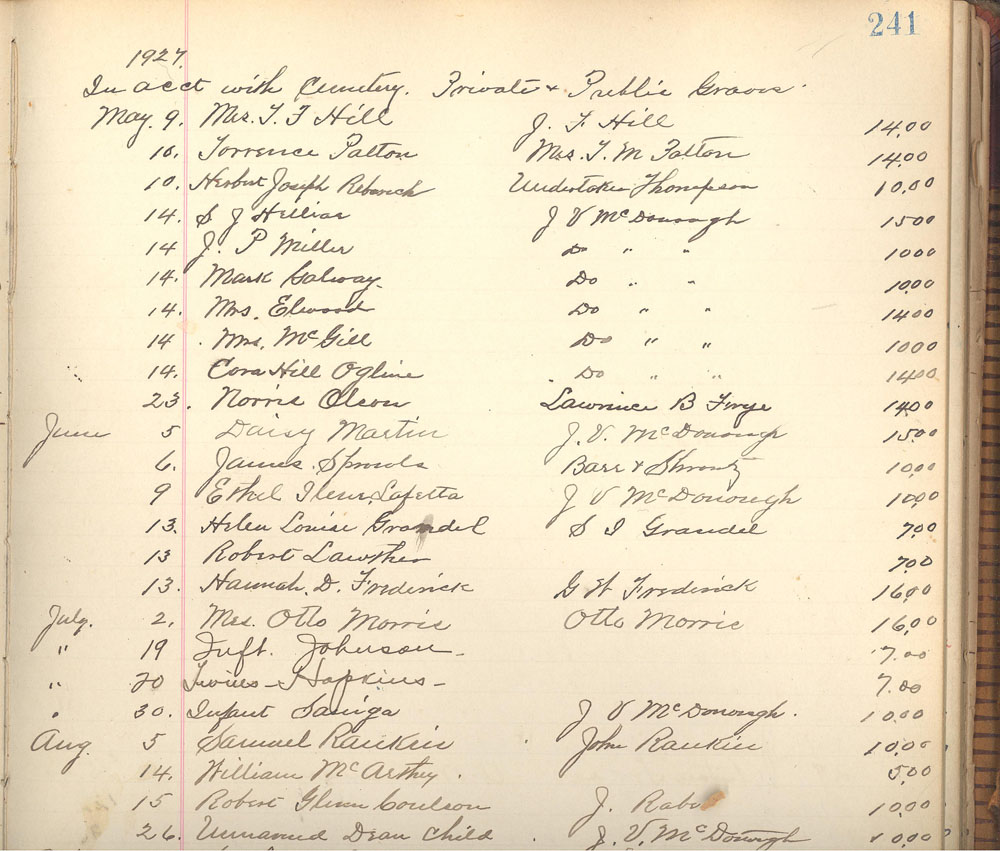 241
1927.
In acct with Cemetery. Private & Public Graves.
May. 9. Mrs. T. F Hill J. F Hill 14.00
10. Torrence Patton Mrs. T. M Patton 14.00
10. Herbert Joseph Undertaker Thompson 10.00
14. S J Hilliar J V McDonough 1500
14 J. P Miller Do " " 1000
14. Mark Galway. Do " " 1000
14. Mrs. Elwood Do " " 1400
14. Mrs. McGill Do " " 1000
14. Cora Hill Ogline Do " " 1400
23. Norris Olson Lawrence B 1400
June 5 Daisy Martin J. V. McDonough 15.00
6. James. Sprouls Barr & Shrontz 10.00
9 Ethel Lafetta J V McDonough 10.00
13. Helen Louise Grandel S I Grandel 7.00
13 Robert Lawther 7.00
13. Hannah. D. Frederick G W Frederick 16.00
July. 2. Mrs. Otto Morris Otto Morris 16.00
" 19 Inft. Johnson - 7.00
" 20 Twins - Hopkins - 7.00
" 30. Infant Saniga J V McDonough. 10.00
Aug. 5 Samuel Rankin John Rankin 10.00
14. William 5.00
15 Robert Glenn Coulson J. 10.00
26. Unnamed Dean Child J. V. McDonough 10.00